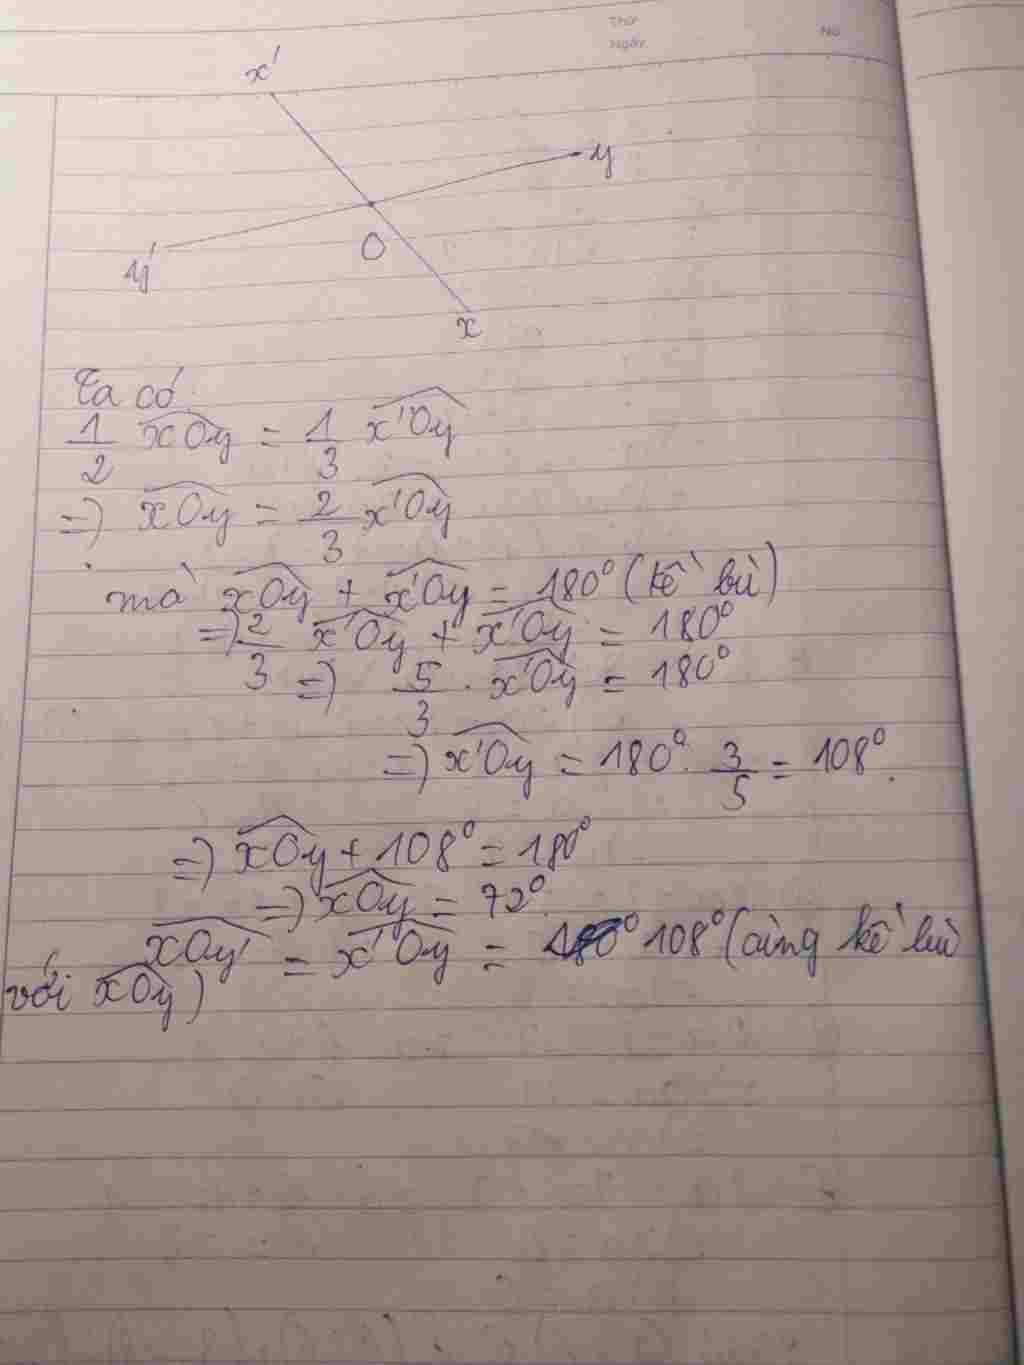 Thứ
Ngày
No
x'
y
y'
O
x
Ta có
1/2 xOy = 1/3 x'Oy
=) xOy = 2/3 x'Oy
mà xOy + x'Oy = 180° (kề bù)
=) 2/3 x'Oy + x'Oy = 180°
=) 5/3 . x'Oy = 180°
=) x'Oy = 180° . 3/5 = 108°.
=) xOy + 108° = 180°
=) xOy = 72°.
xOy' = x'Oy = 108° (cùng kề bù
với xOy)